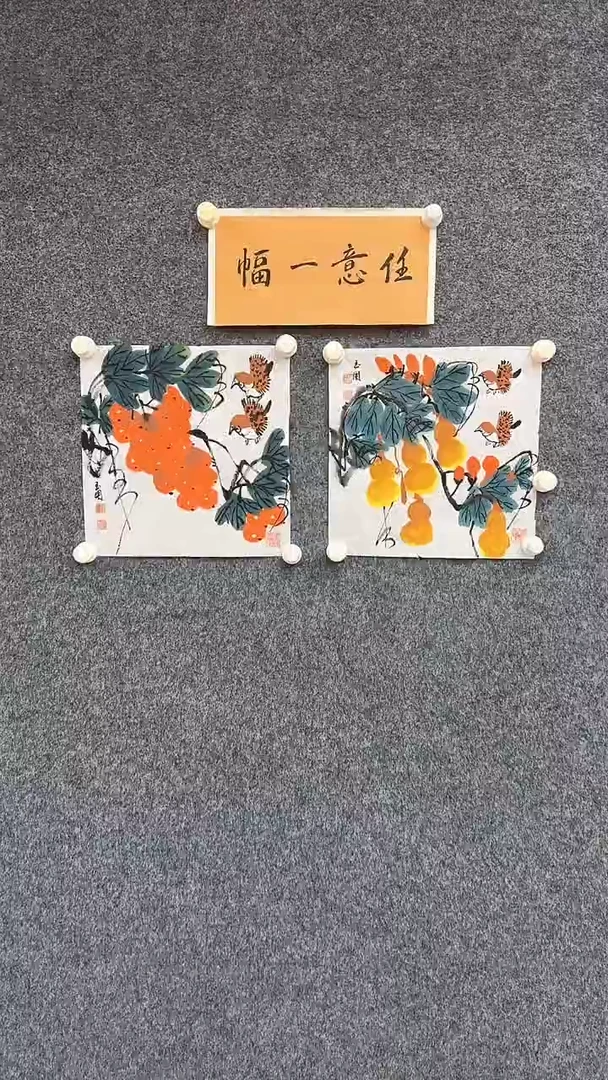 任意一幅